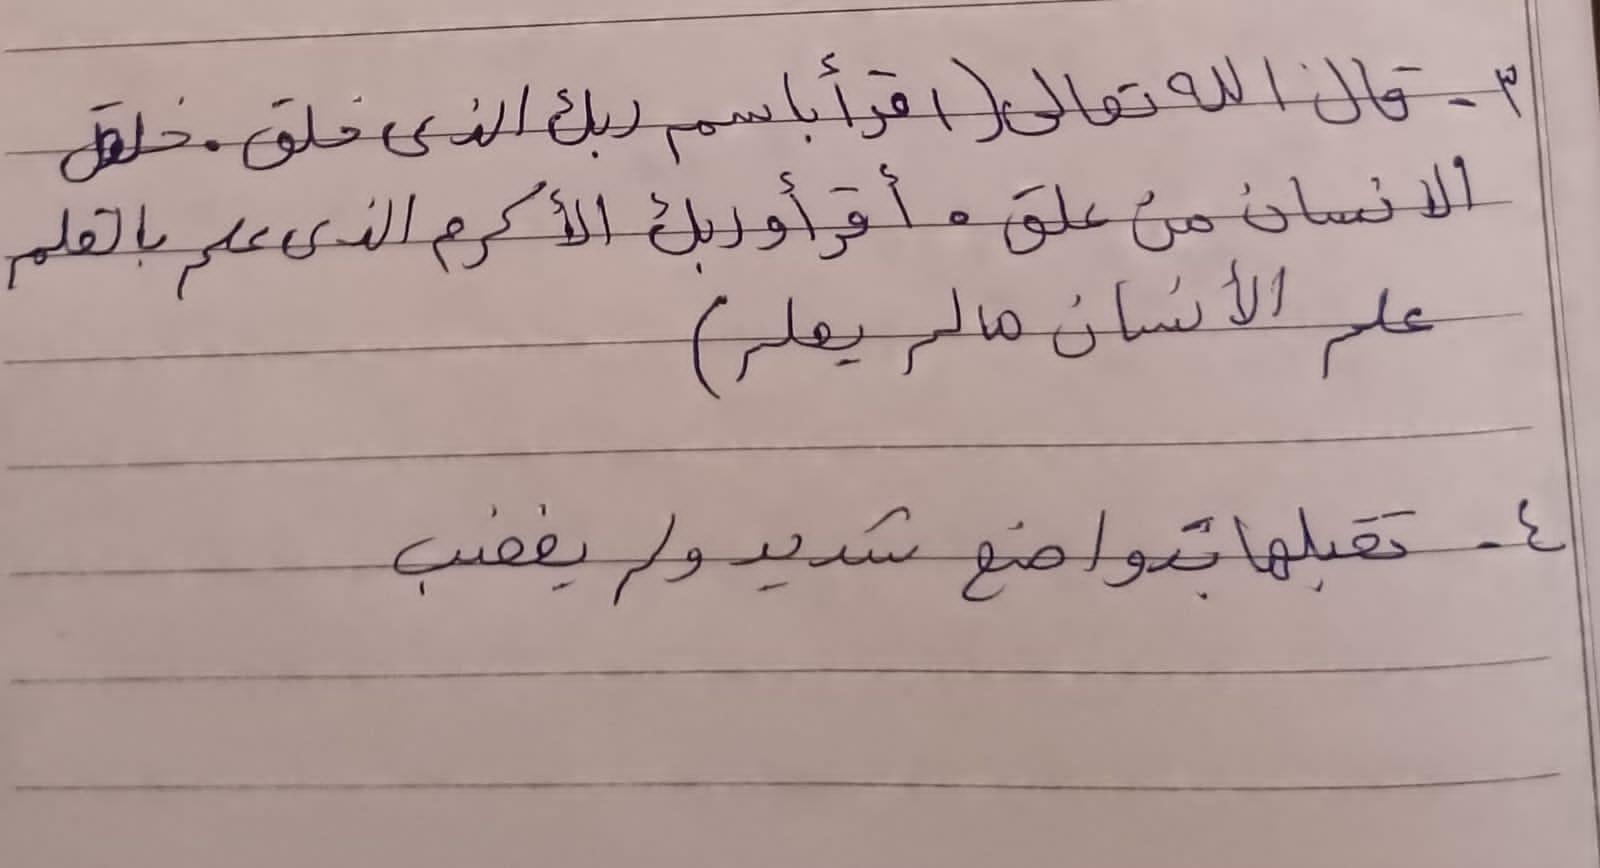 ٣ - قال الله تعالى (اقرأ باسم ربك الذى خلق . خلق
الانسان من علق . أقرأ وربك الأكرم الذى علم بالقلم
علم الأنسان مالم يعلم)
٤ - تقبلها بتواضع شديد ولم يغضب